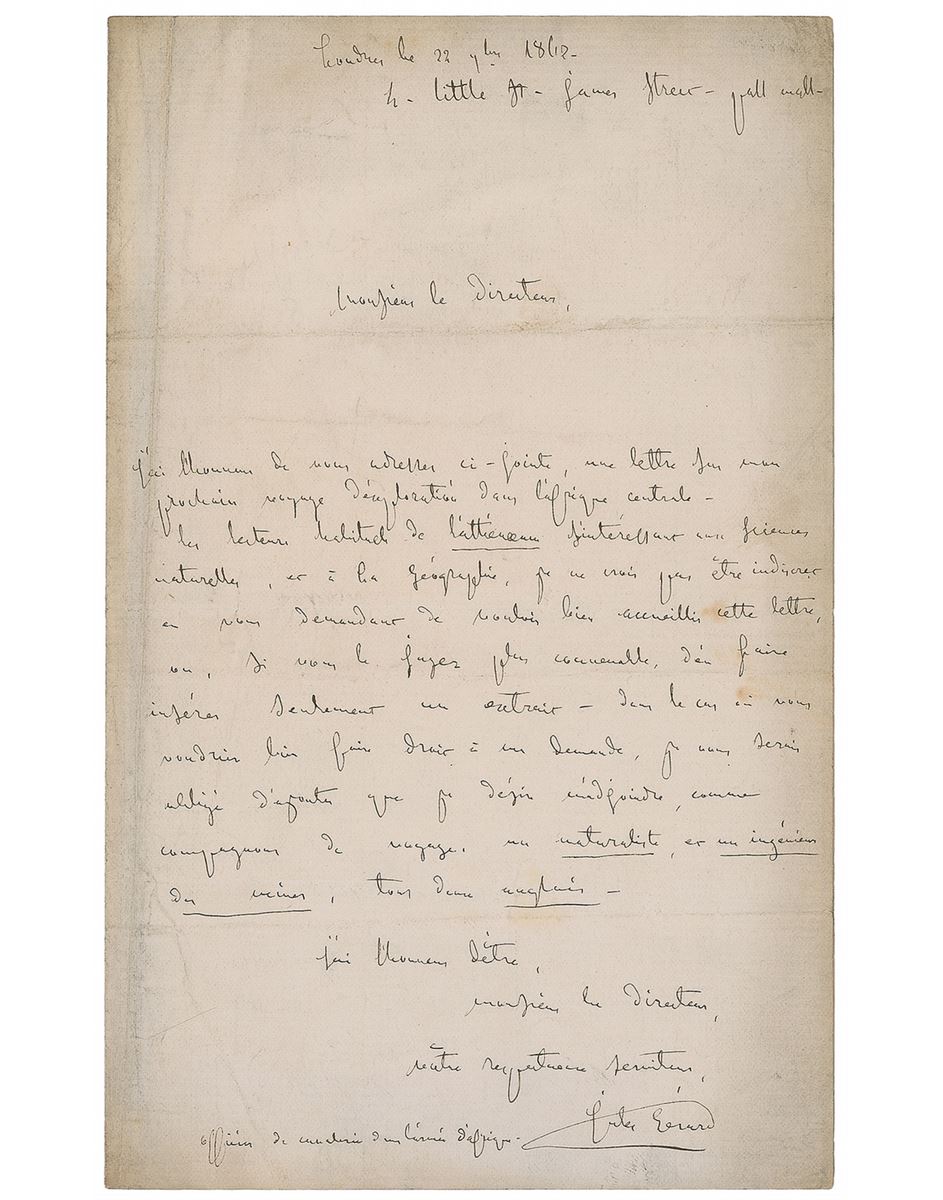 Londres le 22 9bre 1862 -
4 - little St - James Street - pall mall -
Monsieur le Directeur,
j'ai l'honneur de vous adresser ci-jointe, une lettre sur mon
prochain voyage d'exploration dans l'afrique centrale -
les lecteurs habituels de l'athénœum s'intéressant aux sciences
naturelles, et à la géographie, je ne crois pas être indiscret
en vous demandant de vouloir bien accueillir cette lettre,
ou, si vous le jugez plus convenable, d'en faire
insérer seulement un extrait - dans le cas où vous
voudriez bien faire droit à ma demande, je vous serais
obligé d'ajouter que je désire m'adjoindre, comme
compagnons de voyage, un naturaliste, et un ingénieur
des mines, tous deux anglais -
j'ai l'honneur d'être,
monsieur le Directeur,
vôtre respectueux serviteur,
Jules Gérard
officier de cavalerie dans l'armée d'afrique -